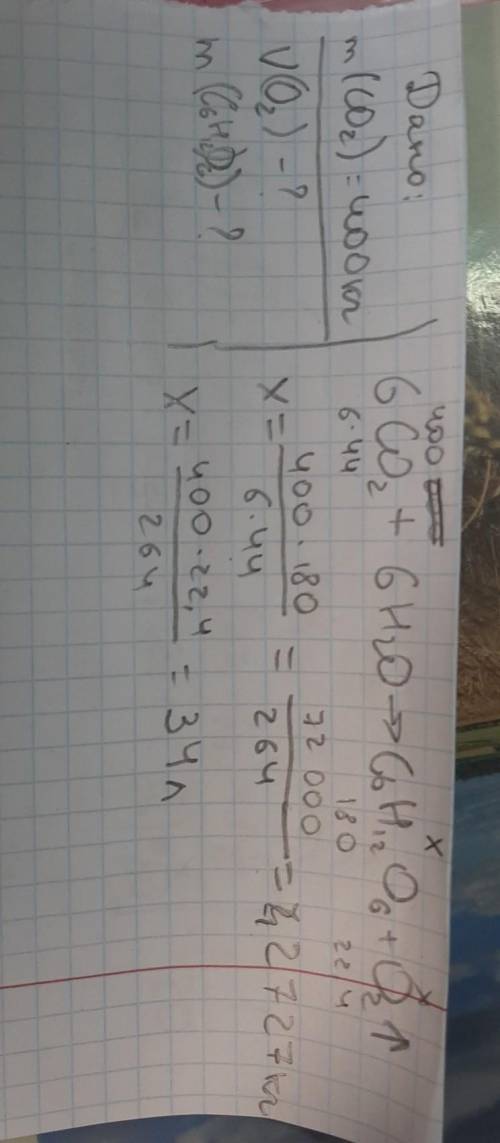 Дано:
m(CO₂) = 400 кг
V(O₂) - ?
m(C₆H₁₂O₆) - ?
400 x x
6CO₂ + 6H₂O → C₆H₁₂O₆ + O₂↑
6·44 180 22,4
x = 400·180 / 6·44 = 72 000 / 264 = 272727 кг
x = 400·22,4 / 264 = 34 л